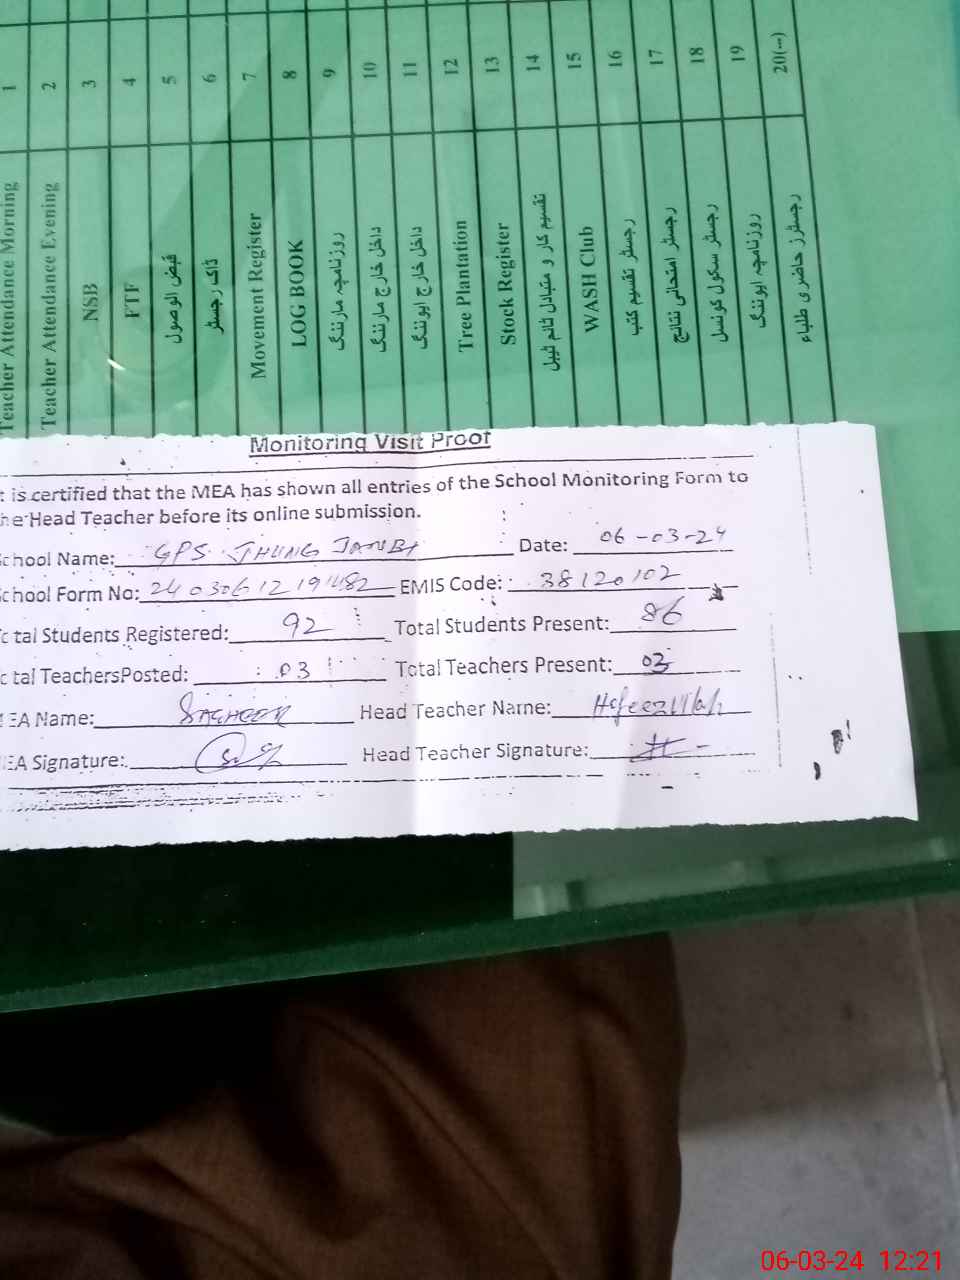 1
Teacher Attendance Morning
2
Teacher Attendance Evening
3
NSB
4
FTF
5
قبض الوصول
6
ڈاک رجسٹر
7
Movement Register
8
LOG BOOK
9
روزنامچہ مارننگ
10
داخل خارج مارننگ
11
داخل خارج ایوننگ
12
Tree Plantation
13
Stock Register
14
تقسیم کار و متبادل ٹائم ٹیبل
15
WASH Club
16
رجسٹر تقسیم کتب
17
رجسٹر امتحانی نتائج
18
رجسٹر سکول کونسل
19
روزنامچہ ایوننگ
20(--)
رجسٹرز حاضری طلباء
Monitoring Visit Proof
is certified that the MEA has shown all entries of the School Monitoring Form to
he Head Teacher before its online submission.
chool Name: GPS JHUNG JANUBI Date: 06-03-24
chool Form No: 24030612191482 EMIS Code: 38120102
tal Students Registered: 92 Total Students Present: 86
tal TeachersPosted: 03 Total Teachers Present: 03
EA Name: SAGHEER Head Teacher Name: Hafeezullah
EA Signature: Head Teacher Signature:
06-03-24 12:21